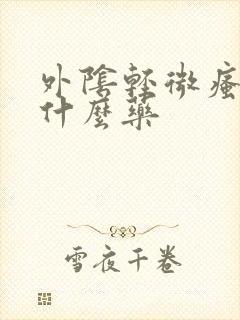 外陰輕微瘙
什麼藥
雪夜千卷